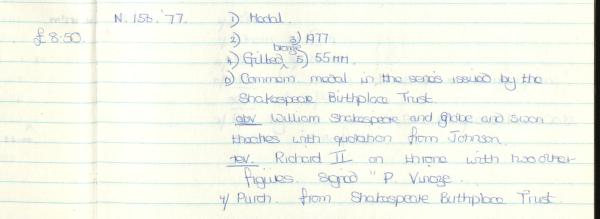 N. 156.'77. 1) Medal.
£8.50. 2) 3) 1977.
4) Gilted bronze 5) 55mm.
6) Commem. medal in the series issued by the
Shakespeare Birthplace Trust.
obv William Shakespeare and globe and swan
theatres with quotation from Johnson.
rev. Richard II on throne with two other
figures. Signed "P. Vincze.
7) Purch. from Shakespeare Birthplace Trust.